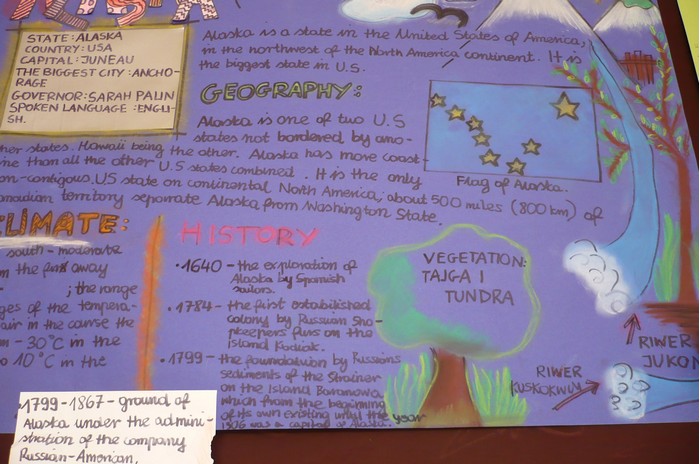 ALASKA
STATE : ALASKA
COUNTRY : USA
CAPITAL : JUNEAU
THE BIGGEST CITY : ANCHO-
RAGE
GOVERNOR : SARAH PALIN
SPOKEN LANGUAGE : ENGLI-
SH.
Alaska is a state in the United States of America,
in the northwest of the North America continent. It is
the biggest state in U.S.
GEOGRAPHY:
Alaska is one of two U.S
states not bordered by ano-
ther states. Hawaii being the other. Alaska has more coast-
ine than all the other U.S states combined. It is the only
on-contigous, US state on continental North America; about 500 miles (800 km) of
anadian territory separate Alaska from Washington State.
Flag of Alaska.
CLIMATE:
south - moderate
m the first away
; the range
ges of the tempera-
air in the caurse the
m - 30°C in the
o 10°C in the
HISTORY
• 1640 - the exploration of
Alaska by Spanish
sailors.
• 1784 - the first estabilished
colony by Russian Sho-
pkeepers furs on the
island Kodiak.
• 1799 - the foundatioun by Russians
sediments of the Strainer
on the Island Baranowa,
which from the beginning
of its own existing until the year
1906 was a capital of Alaska.
1799 - 1867 - ground of
Alaska under the admini-
stration of the company
Russian-American.
VEGETATION:
TAJGA I
TUNDRA
RIWER
KUSKOKWIM
RIWER
JUKON